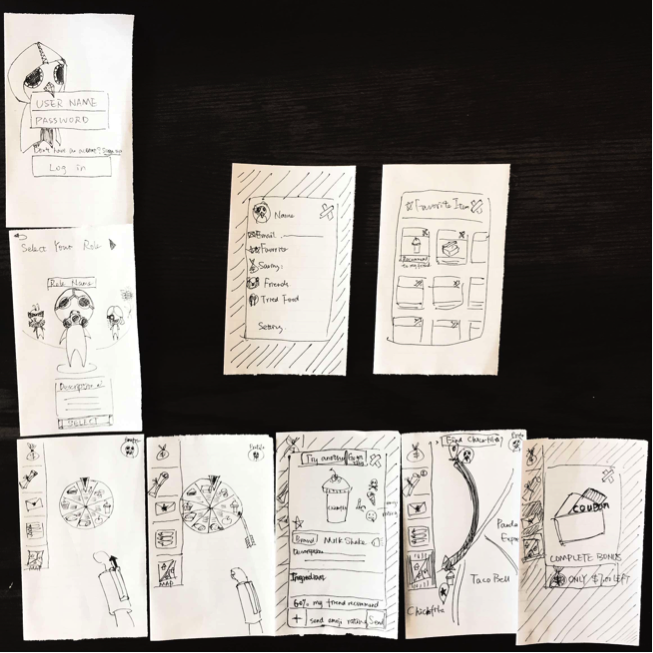 USER NAME
PASSWORD
Don't have an account? Sign up
Log in
Select Your Role
Role Name
Description
SELECT
Name
Email:
Favorite
Saving:
Friends
Tried Food
Setting
Favorite Item
Recommend
to my friend
Profile
MAP
Profile
MAP
Try another
Brand
Milk Shake
Description
Ingredient
60% my friend recommend
+ send emoji rating Send
Find Chickfila
Panda
Expre
Taco Bell
Chickfila
COUPON
COMPLETE BONUS
ONLY
LEFT